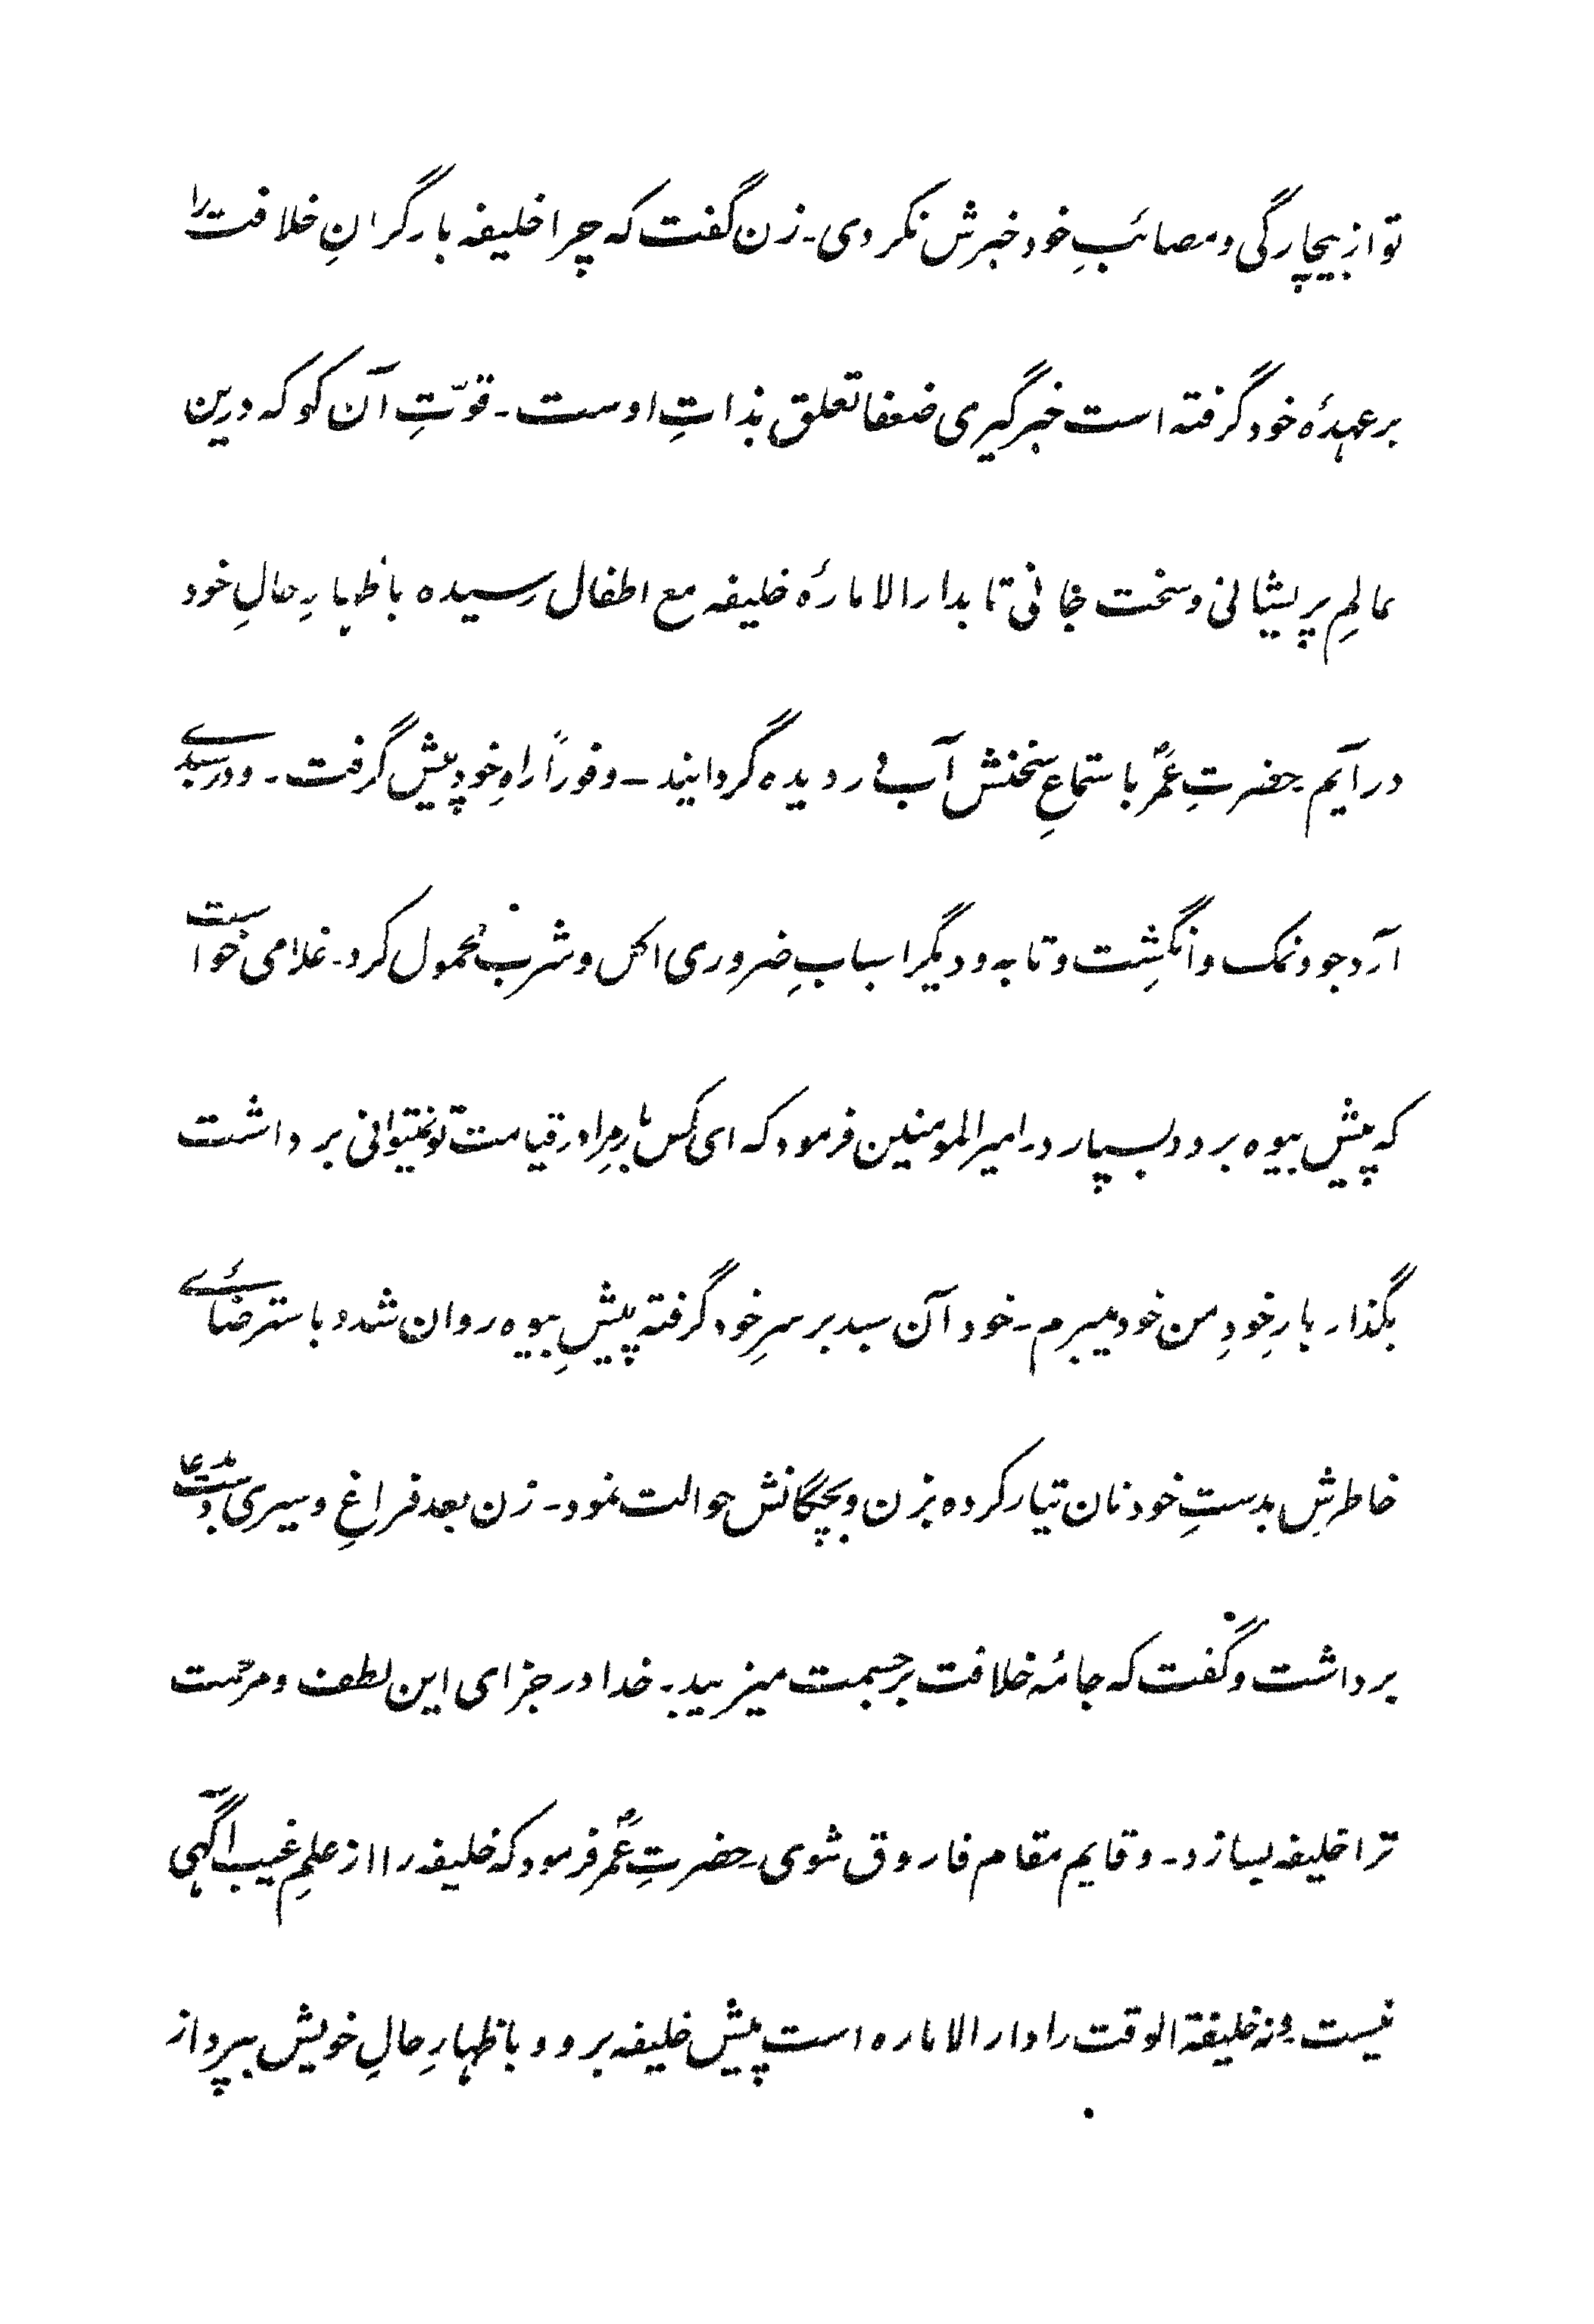 تو از بیچارگی و مصائبِ خود خبرش نکردی۔ زن گفت که چرا خلیفه بار گرانِ خلافت را
بر عہدۂ خود گرفته است خبر گیری ضعفا تعلق بذاتِ اوست۔ قوّتِ آن کو که درین
عالمِ پریشانی و سخت جانی تا بدار الامارۂ خلیفه مع اطفال رسیده باظہارِ حالِ خود
در آیم۔ حضرتِ عمرؓ باستماعِ سخنش آب در دیده گردانید۔ و فوراً راهِ خود پیش گرفت۔ و در سبدے
آرد جو و نمک و انگِشت و تابه و دیگر اسبابِ ضروری اکل و شرب محمول کرد۔ غلامی خواست
که پیش بیوه برود بسپارد۔ امیر المومنین فرمود که ای کس بارِ مرا در قیامت تو نمیتوانی برداشت
بگذار بارِ خودِ من خود میبرم۔ خود آن سبد بر سرِ خود گرفته پیشِ بیوه روان شد و باسترضائے
خاطرش بدستِ خود نان تیار کرده بزن و بچگانش حوالت نمود۔ زن بعد فراغِ و سیری دست بدعا
برداشت و گفت که جامۂ خلافت بر جسمت میزیبد۔ خدا در جزای این لطف و مرحمت
ترا خلیفه بسازد۔ و قایم مقام فاروق شوی۔ حضرتِ عمرؓ فرمود که خلیفه را از علمِ غیب آگہی
نیست ونه خلیفة الوقت را دار الاماره است پیش خلیفه برو و باظہارِ حالِ خویش بپرداز